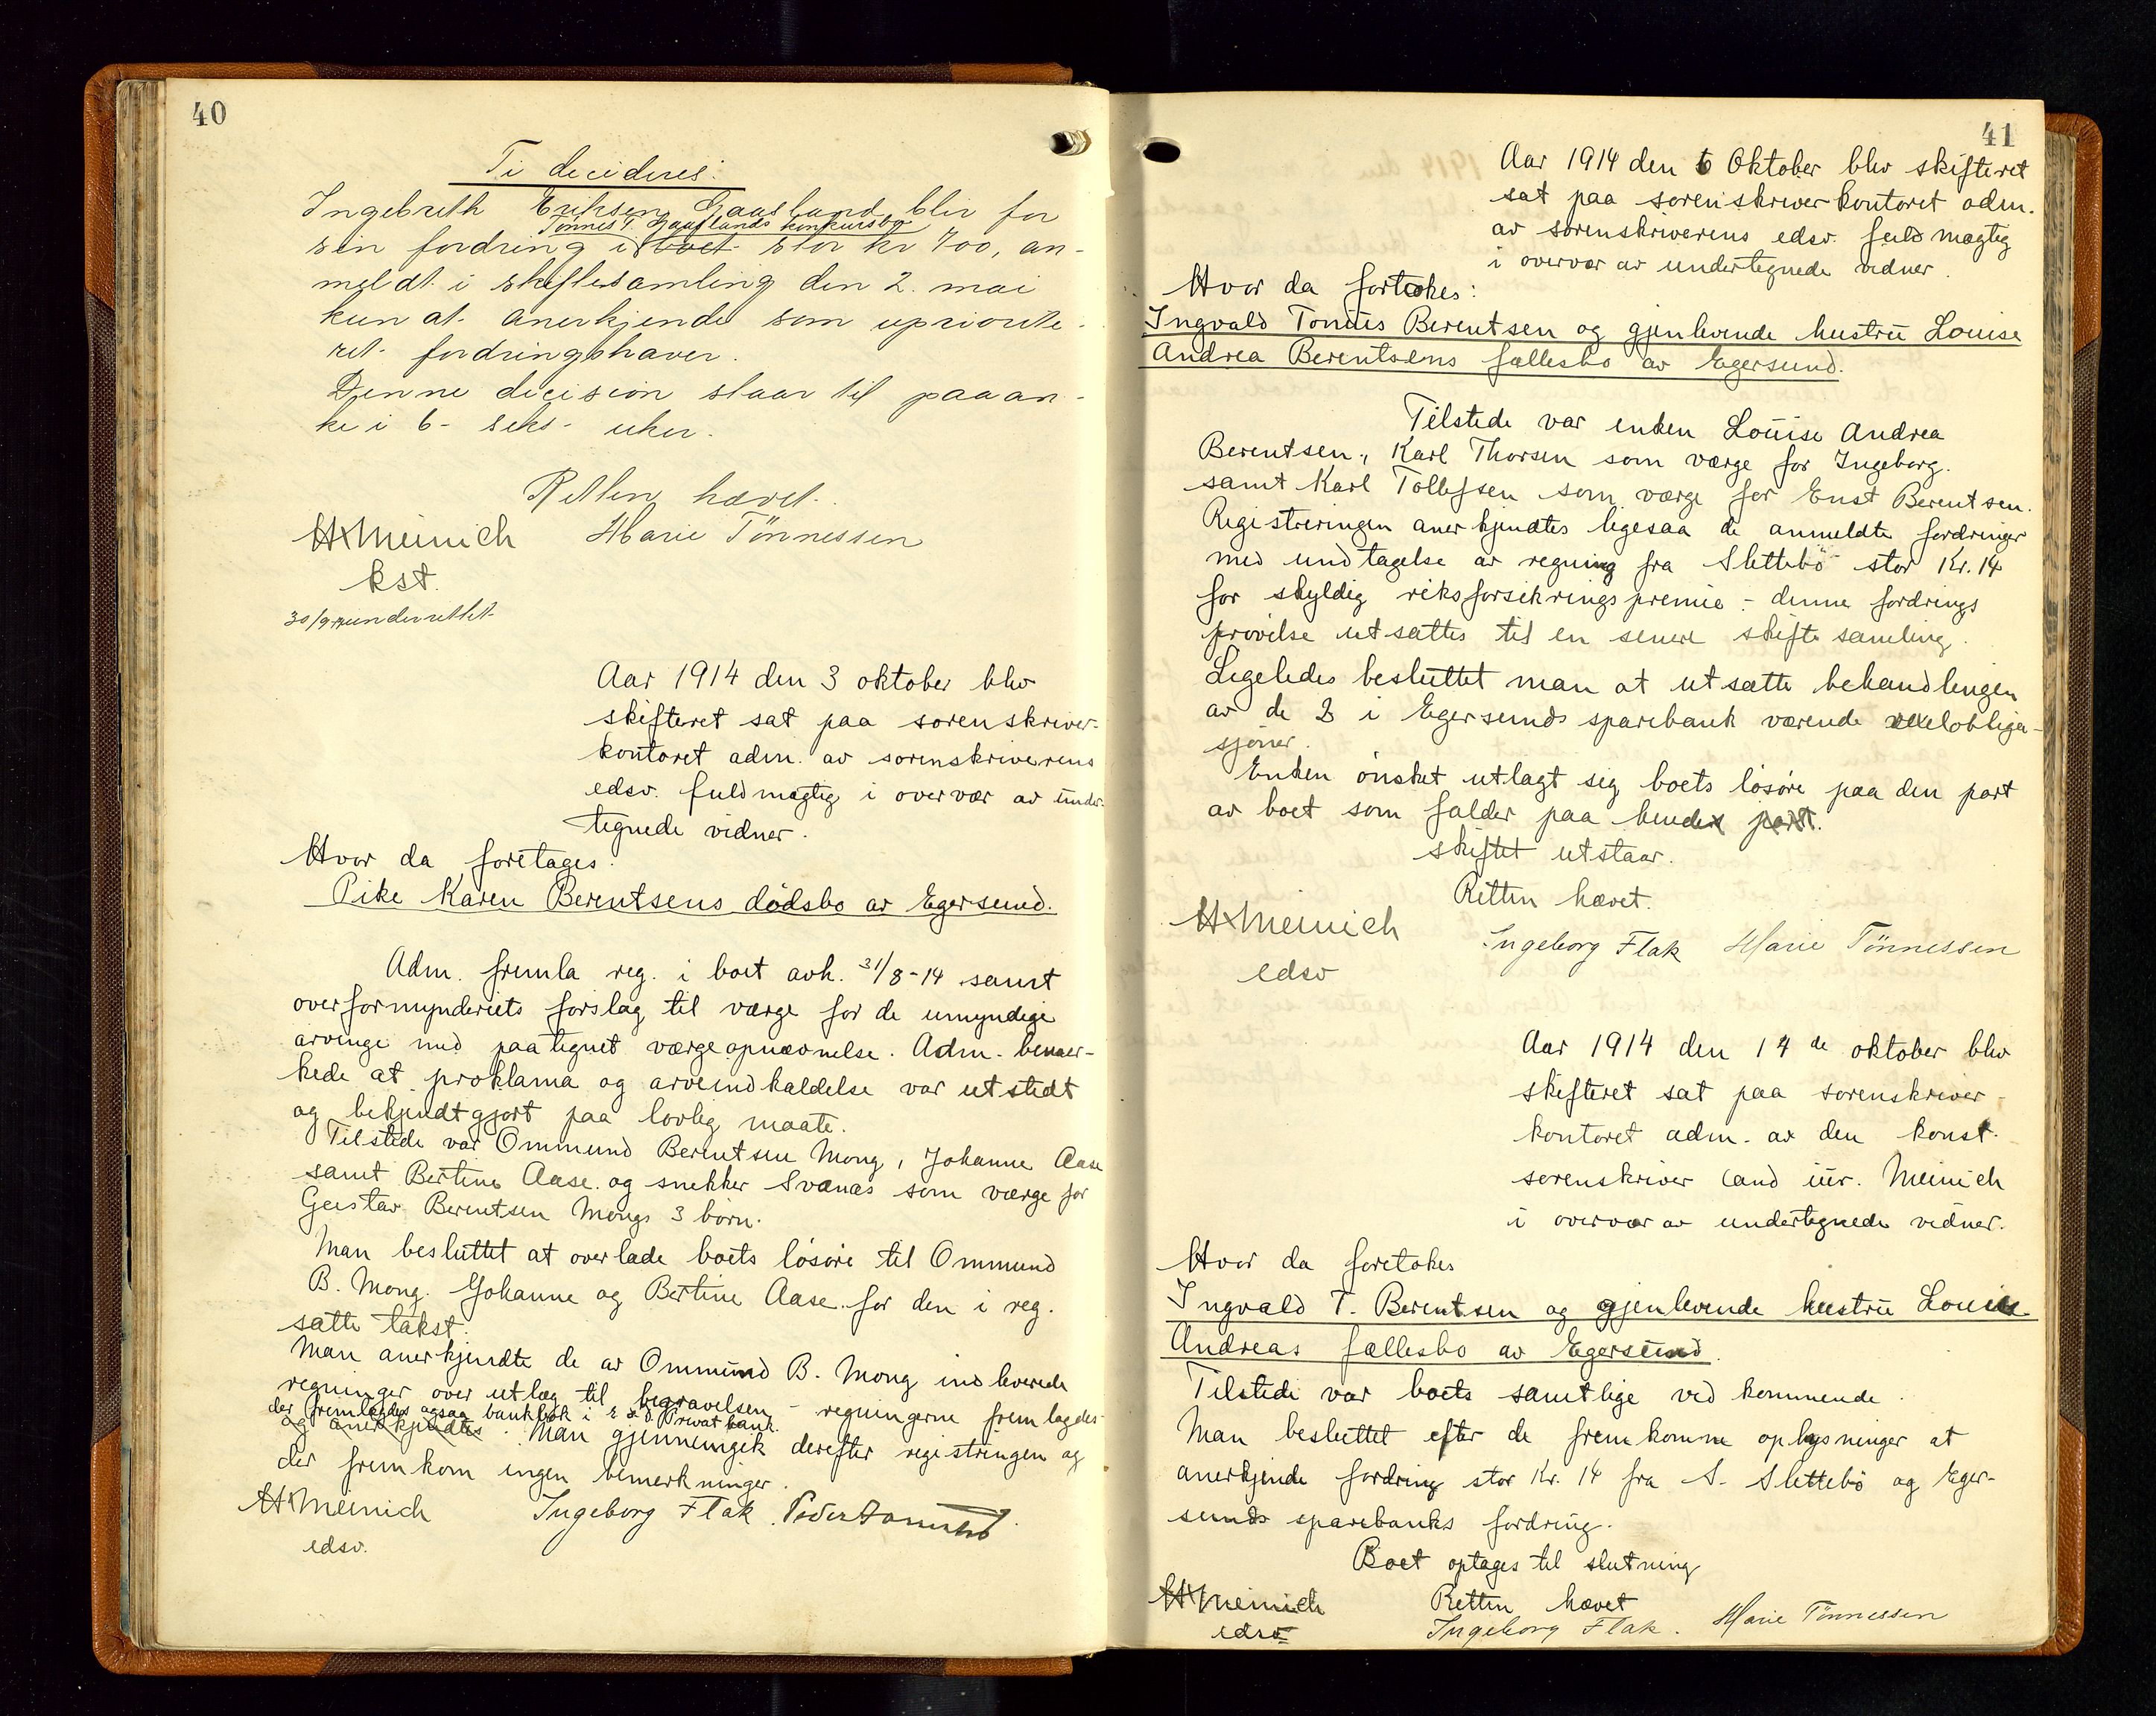 40
Ti decideres:
Ingebreth Eriksen Gaasland blir for
Tønnes T. Gaaslands konkursbo
sin fordring i boet stor kr 700, an-
meldt i skiftesamling den 2. mai
kun at anerkjende som upriorite-
ret fordringshaver.
Denne decision staar til paaan-
ke i 6 - seks - uker.
Retten hævet.
H Meinich Marie Tönnessen
kst.
30/9 underrettet
Aar 1914 den 3 oktober blev
skifteret sat paa sorenskriver-
kontoret adm. av sorenskriverens
edsv. fuldmægtig i overvær av under-
tegnede vidner.
Hvor da foretages:
Pike Karen Berentsens dödsbo av Egersund.
Adm. fremla reg. i boet avh. 31/8-14 samt
overformynderiets forslag til værge for de umyndige
arvinge med paategnet værgeopnævnelse. Adm. bemær-
kede at proklama og arveindkaldelse var utstedt
og bekjendtgjort paa lovlig maate.
Tilstede var Ommund Berentsen Mong, Johanne Aase
samt Bertine Aase og snekker Svanæs som værge for
Gustav Berentsen Mongs 3 börn.
Man besluttet at overlade boets lösöre til Ommund
B. Mong. Johanne og Bertine Aase for den i reg.
satte takst.
Man anerkjendte de av Ommund B. Mong indleverede
regninger over utlæg til begravelsen - regningerne fremlagdes
der fremlagdes ogsaa bankbok i E & O Privatbank.
og anerkjendtes. Man gjennemgik derefter registringen og
der fremkom ingen bemerkninger.
H Meinich Ingeborg Flak
edsv.
41
Aar 1914 den 6 Oktober blev skifteret
sat paa sorenskriverkontoret adm.
av sorenskriverens edsv. fuldmægtig
i overvær av undertegnede vidner.
Hvor da foretokes:
Ingvald Tonnes Berentsen og gjenlevende hustru Louise
Andrea Berentsens fællesbo av Egersund.
Tilstede var enken Louise Andrea
Berentsen, Karl Thorsen som værge for Ingeborg.
samt Karl Tollefsen som værge for Enst Berentsen.
Registreringen anerkjendtes ligesaa de anmeldte fordringer
med undtagelse av regning fra Slettebö stor Kr. 14
for skyldig riksforsikringspremie - denne fordrings
prövelse utsattes til en senere skiftesamling.
Ligeledes besluttet man at utsætte behandlingen
av de 3 i Egersunds sparebank værende vexelobliga-
sjoner.
Enken önsket utlagt sig boets lösöre paa den part
av boet som falder paa hende part.
skiftet utstaar.
Retten hævet.
H Meinich Ingeborg Flak Marie Tönnessen
edsv
Aar 1914 den 14 de oktober blev
skifteret sat paa sorenskriver-
kontoret adm. av den konst.
sorenskriver Cand iur. Meinich
i overvær av undertegnede vidner.
Hvor da foretokes
Ingvald T. Berentsen og gjenlevende hustru Louise
Andreas fællesbo av Egersund.
Tilstede var boets samtlige vedkommende.
Man besluttet efter de fremkomne oplysninger at
anerkjende fordring stor Kr. 14 fra S. Slettebö og Eger-
sunds sparebanks fordring.
Boet optages til slutning
Retten hævet
H Meinich Ingeborg Flak. Marie Tönnessen
edsv